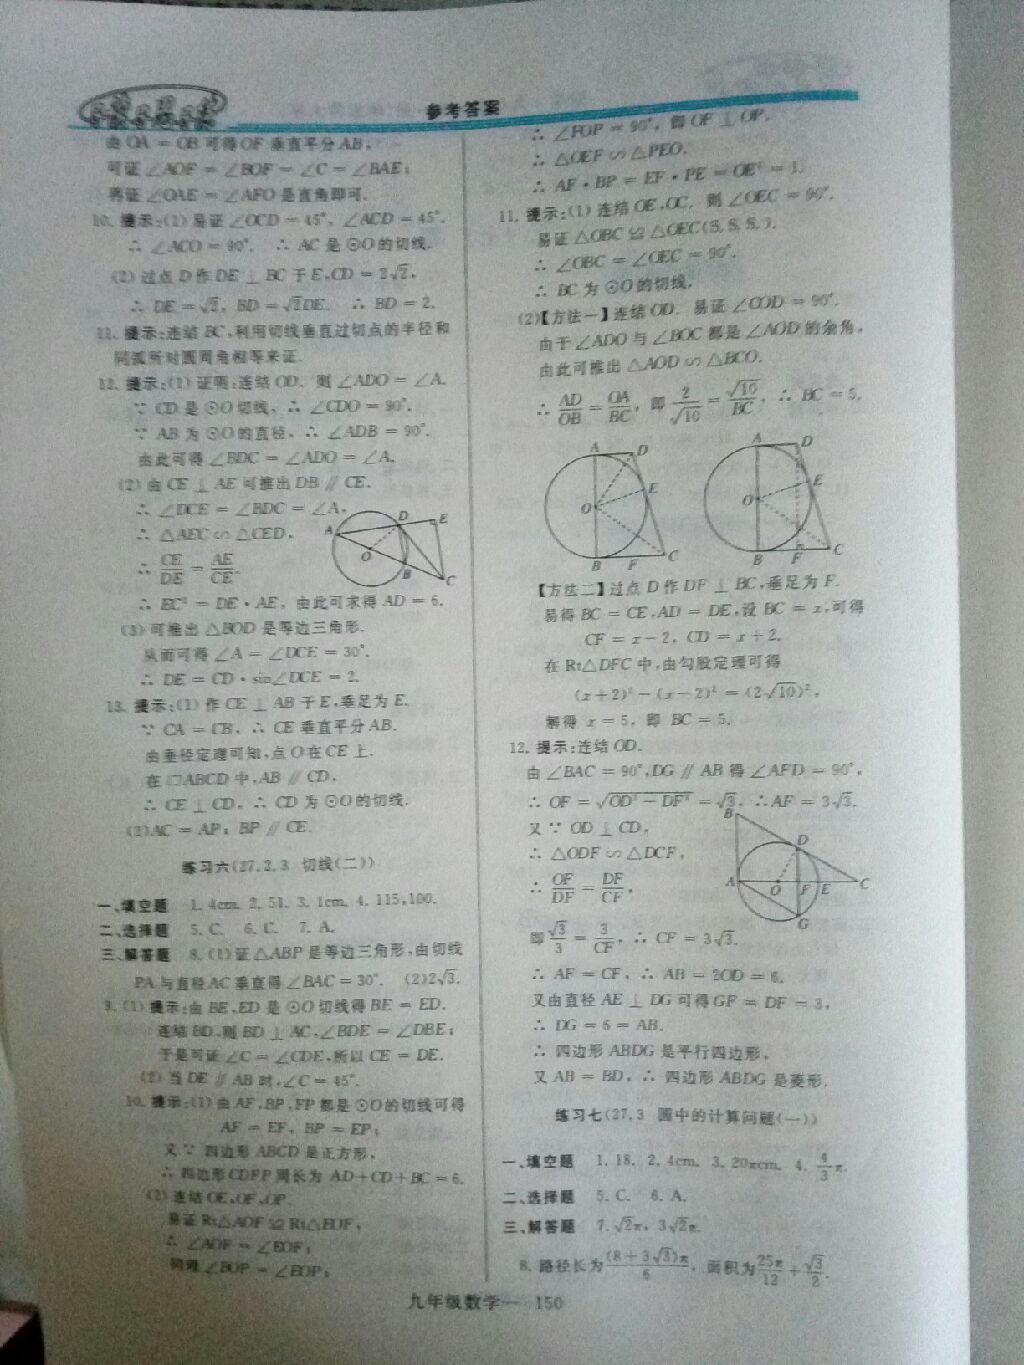 参考答案
由 OA = OB 可得 OF 垂直平分 AB,
可证 ∠AOF = ∠BOF = ∠C = ∠BAE;
再证 ∠OAE = ∠AFO 是直角即可.
10. 提示:(1) 易证 ∠OCD = 45°, ∠ACD = 45°.
∴ ∠ACO = 90°. ∴ AC 是 ⊙O 的切线.
(2) 过点 D 作 DE ⊥ BC 于 E, CD = 2√2,
∴ DE = √2, BD = √2DE. ∴ BD = 2.
11. 提示:连结 BC, 利用切线垂直过切点的半径和
同弧所对圆周角相等来证.
12. 提示:(1) 证明:连结 OD. 则 ∠ADO = ∠A.
∵ CD 是 ⊙O 切线, ∴ ∠CDO = 90°.
∵ AB 为 ⊙O 的直径, ∴ ∠ADB = 90°.
由此可得 ∠BDC = ∠ADO = ∠A.
(2) 由 CE ⊥ AE 可推出 DB ∥ CE.
∴ ∠DCE = ∠BDC = ∠A,
∴ △AEC ∽ △CED,
∴ CE/DE = AE/CE.
A D E O B C
∴ EC² = DE · AE, 由此可求得 AD = 6.
(3) 可推出 △BOD 是等边三角形.
从而可得 ∠A = ∠DCE = 30°.
∴ DE = CD · sin∠DCE = 2.
13. 提示:(1) 作 CE ⊥ AB 于 E, 垂足为 E.
∵ CA = CB, ∴ CE 垂直平分 AB.
由垂径定理可知, 点 O 在 CE 上.
在 □ABCD 中, AB ∥ CD,
∴ CE ⊥ CD, ∴ CD 为 ⊙O 的切线.
(2) AC = AP; BP ∥ CE.
练习六(27.2.3 切线(二))
一、填空题 1. 4cm. 2. 51. 3. 1cm. 4. 115,100.
二、选择题 5. C. 6. C. 7. A.
三、解答题 8. (1) 证 △ABP 是等边三角形, 由切线
PA 与直径 AC 垂直得 ∠BAC = 30°. (2) 2√3.
9. (1) 提示:由 BE、ED 是 ⊙O 切线得 BE = ED.
连结 BD, 则 BD ⊥ AC, ∠BDE = ∠DBE;
于是可证 ∠C = ∠CDE, 所以 CE = DE.
(2) 当 DE ∥ AB 时, ∠C = 45°.
10. 提示:(1) 由 AF、BP、FP 都是 ⊙O 的切线可得
AF = EF, BP = EP;
又 ∵ 四边形 ABCD 是正方形,
∴ 四边形 CDFP 周长为 AD + CD + BC = 6.
(2) 连结 OE、OF、OP.
易证 Rt△AOF ≌ Rt△EOF,
∴ ∠AOF = ∠EOF;
同理 ∠BOP = ∠EOP;
∴ ∠FOP = 90°, 即 OF ⊥ OP.
∴ △OEF ∽ △PEO.
∴ AF · BP = EF · PE = OE² = 1.
11. 提示:(1) 连结 OE、OC. 则 ∠OEC = 90°.
易证 △OBC ≌ △OEC(S.S.S.).
∴ ∠OBC = ∠OEC = 90°.
∴ BC 为 ⊙O 的切线.
(2)【方法一】连结 OD. 易证 ∠COD = 90°.
由于 ∠ADO 与 ∠BOC 都是 ∠AOD 的余角,
由此可推出 △AOD ∽ △BCO.
∴ AD/OB = OA/BC, 即 2/√10 = √10/BC, ∴ BC = 5.
A D E O B F C
A D E O B F C
【方法二】过点 D 作 DF ⊥ BC, 垂足为 F.
易得 BC = CE, AD = DE, 设 BC = x, 可得
CF = x − 2, CD = x + 2.
在 Rt△DFC 中, 由勾股定理可得
(x+2)² − (x−2)² = (2√10)²,
解得 x = 5, 即 BC = 5.
12. 提示:连结 OD.
由 ∠BAC = 90°, DG ∥ AB 得 ∠AFD = 90°,
∴ OF = √(OD² − DF²) = √3, ∴ AF = 3√3.
又 ∵ OD ⊥ CD,
∴ △ODF ∽ △DCF,
∴ OF/DF = DF/CF,
B D A O F E C G
即 √3/3 = 3/CF, ∴ CF = 3√3.
∴ AF = CF, ∴ AB = 2OD = 6.
又由直径 AE ⊥ DG 可得 GF = DF = 3,
∴ DG = 6 = AB.
∴ 四边形 ABDG 是平行四边形,
又 AB = BD, ∴ 四边形 ABDG 是菱形.
练习七(27.3 圆中的计算问题(一))
一、填空题 1. 18. 2. 4cm. 3. 20πcm. 4. 4/3π.
二、选择题 5. C. 6. A.
三、解答题 7. √2π, 3√2π.
8. 路径长为 (8+3√3)π/6, 面积为 25π/12 + √3/2.
九年级数学— 150